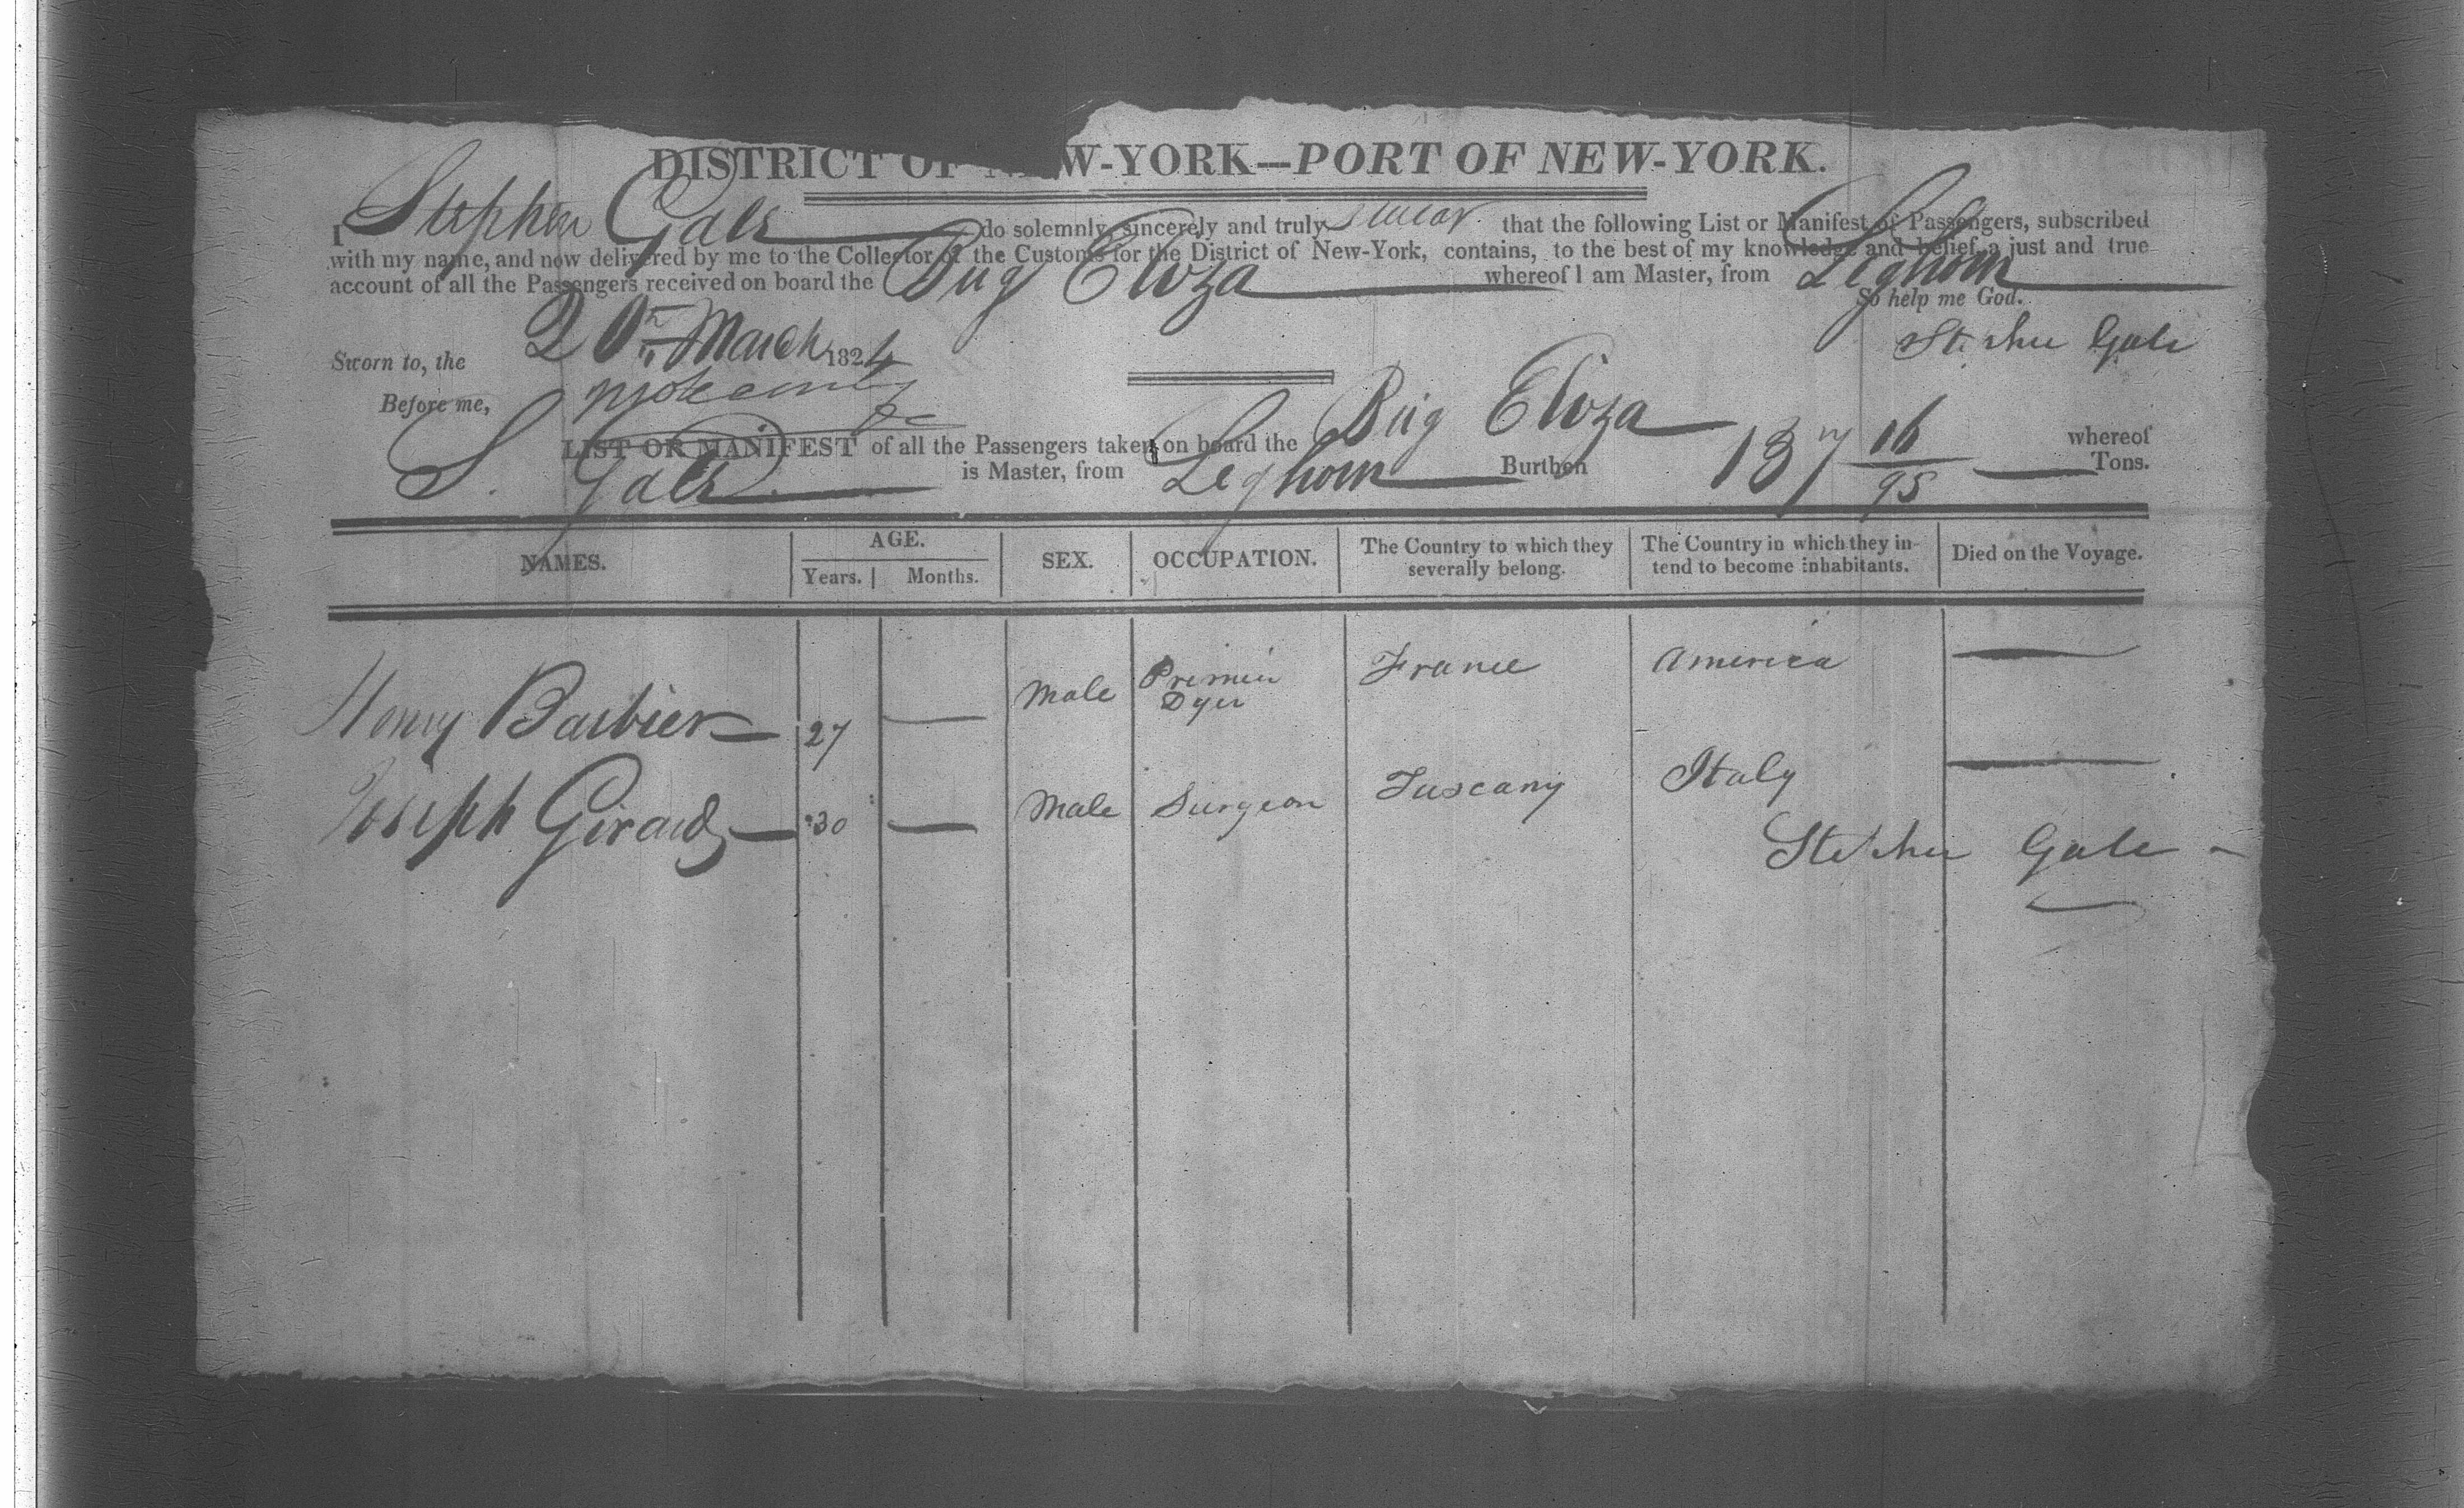 DISTRICT OF NEW-YORK—PORT OF NEW-YORK.
I Stephen Gale do solemnly, sincerely and truly swear that the following List or Manifest of Passengers, subscribed
with my name, and now delivered by me to the Collector of the Customs for the District of New-York, contains, to the best of my knowledge and belief, a just and true
account of all the Passengers received on board the Brig Eliza whereof I am Master, from Leghorn
So help me God.
Sworn to, the 20th March 1824
Stephen Gale
Before me,
LIST OR MANIFEST of all the Passengers taken on board the Brig Eliza whereof
S. Gale is Master, from Leghorn Burthen 137 16/95 Tons.
NAMES. AGE. Years. Months. SEX. OCCUPATION. The Country to which they severally belong. The Country in which they intend to become inhabitants. Died on the Voyage.
Henry Barbier 27 — Male Dyer France America —
Joseph Girard 30 — Male Surgeon Tuscany Italy —
Stephen Gale